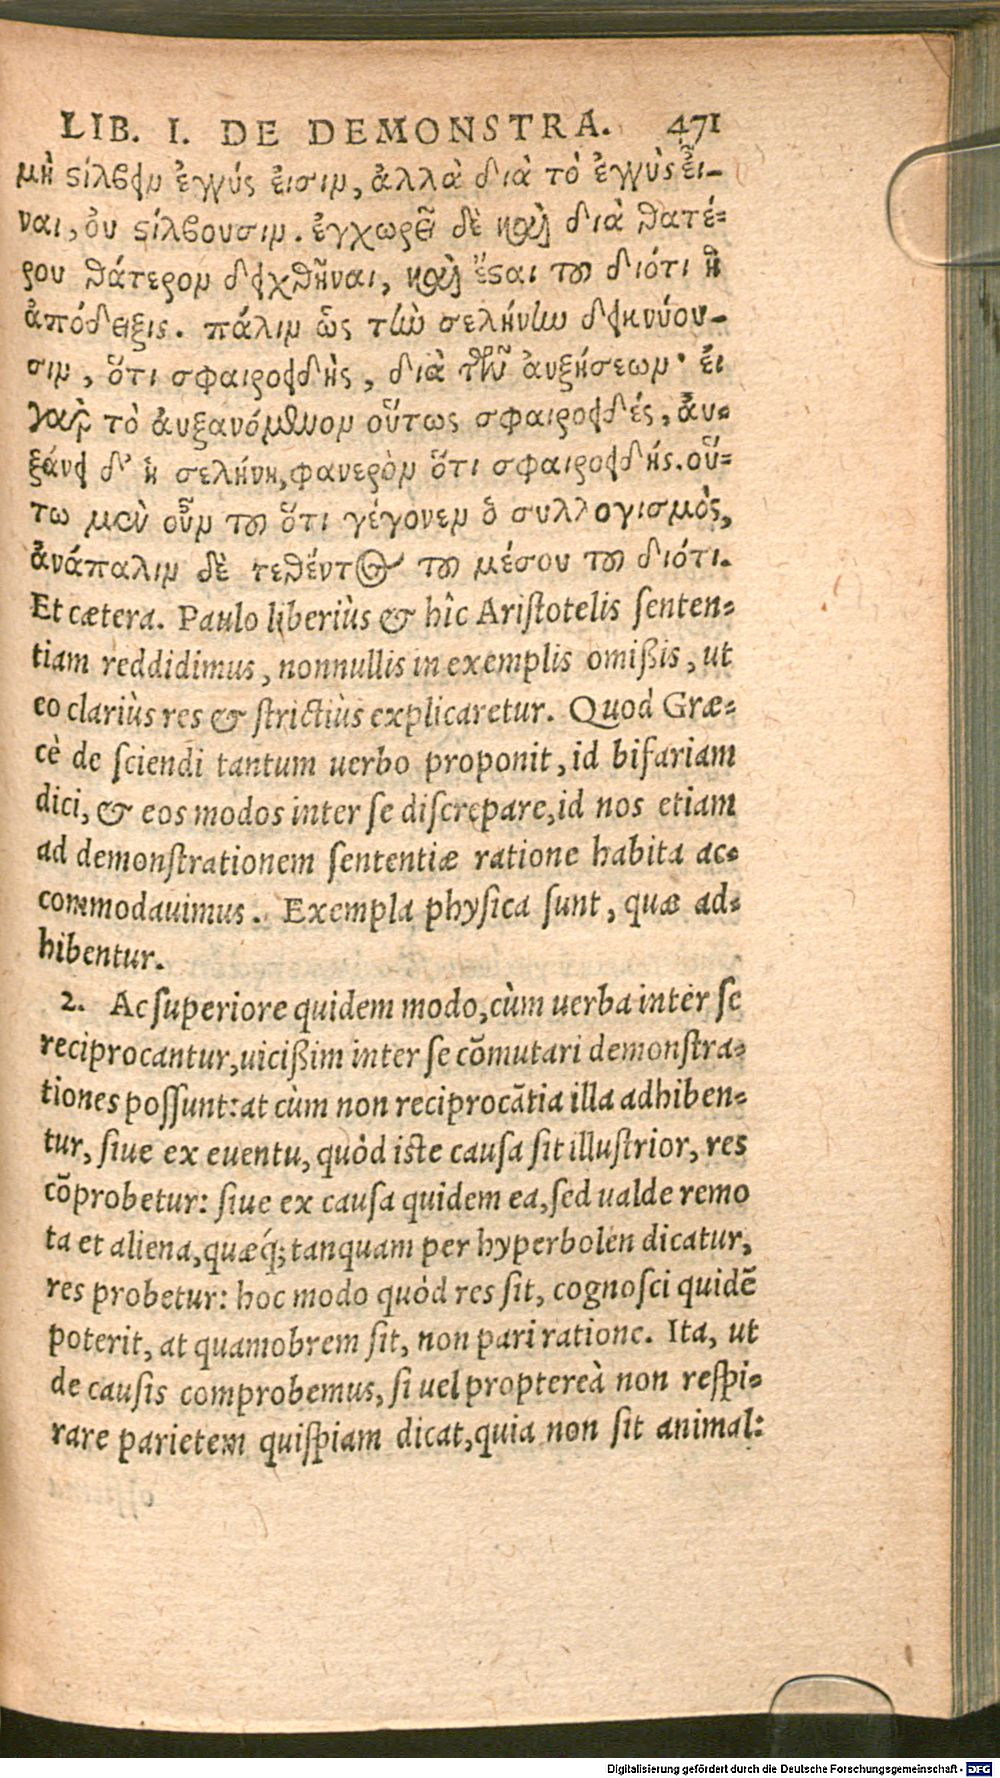 LIB. I. DE DEMONSTRA. 471
μὴ στίλβειν ἐγγύς ἐισιν, ἀλλὰ διὰ τὸ ἐγγὺς εἶ-
ναι, ὀυ στίλβουσιν. ἐγχωρεῖ δὲ καὶ διὰ θατέ-
ρου θάτερον δειχθῆναι, καὶ ἔσται τοῦ διότι ἡ
ἀπόδειξις. πάλιν ὡς τὴν σελήνην δεικνύου-
σιν, ὅτι σφαιροειδὴς, διὰ τῶν ἀυξήσεων· ἐι
γὰρ τὸ ἀυξανόμενον οὕτως σφαιροειδές, ἀυ-
ξάνει δ' ἡ σελήνη, φανερὸν ὅτι σφαιροειδής. οὕ-
τω μὲν οὖν τοῦ ὅτι γέγονεν ὁ συλλογισμὸς,
ἀνάπαλιν δὲ τεθέντος τοῦ μέσου τοῦ διότι.
Et cætera. Paulo liberiùs & hîc Aristotelis senten-
tiam reddidimus, nonnullis in exemplis omißis, ut
eo clariùs res & strictiùs explicaretur. Quod Græ-
cè de sciendi tantum uerbo proponit, id bifariam
dici, & eos modos inter se discrepare, id nos etiam
ad demonstrationem sententiæ ratione habita ac-
commodauimus. Exempla physica sunt, quæ ad-
hibentur.
2. Ac superiore quidem modo, cùm uerba inter se
reciprocantur, uicißim inter se cõmutari demonstra-
tiones possunt: at cùm non reciprocãtia illa adhiben-
tur, siue ex euentu, quòd iste causa sit illustrior, res
cõprobetur: siue ex causa quidem ea, sed ualde remo
ta et aliena, quæq́; tanquam per hyperbolen dicatur,
res probetur: hoc modo quòd res sit, cognosci quidẽ
poterit, at quamobrem sit, non pari ratione. Ita, ut
de causis comprobemus, si uel proptereà non respi-
rare parietem quispiam dicat, quia non sit animal:
Digitalisierung gefördert durch die Deutsche Forschungsgemeinschaft - DFG